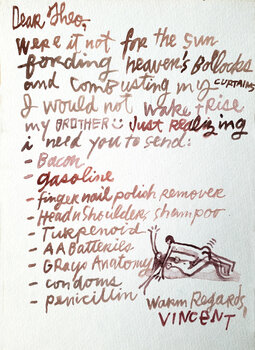 Dear Theo,
were it not for the sun
fording heaven's Bollocks
and combusting my CURTAINS
I would not wake + rise
my BROTHER ☺ Just Realizing
i need you to send:
- Bacon
- gasoline
- finger nail polish remover
- Head n Shoulders shampoo
- Turpenoid
- AA Batteries
- GRays Anatomy
- condoms
- penicillin
Warm Regards,
VINCENT